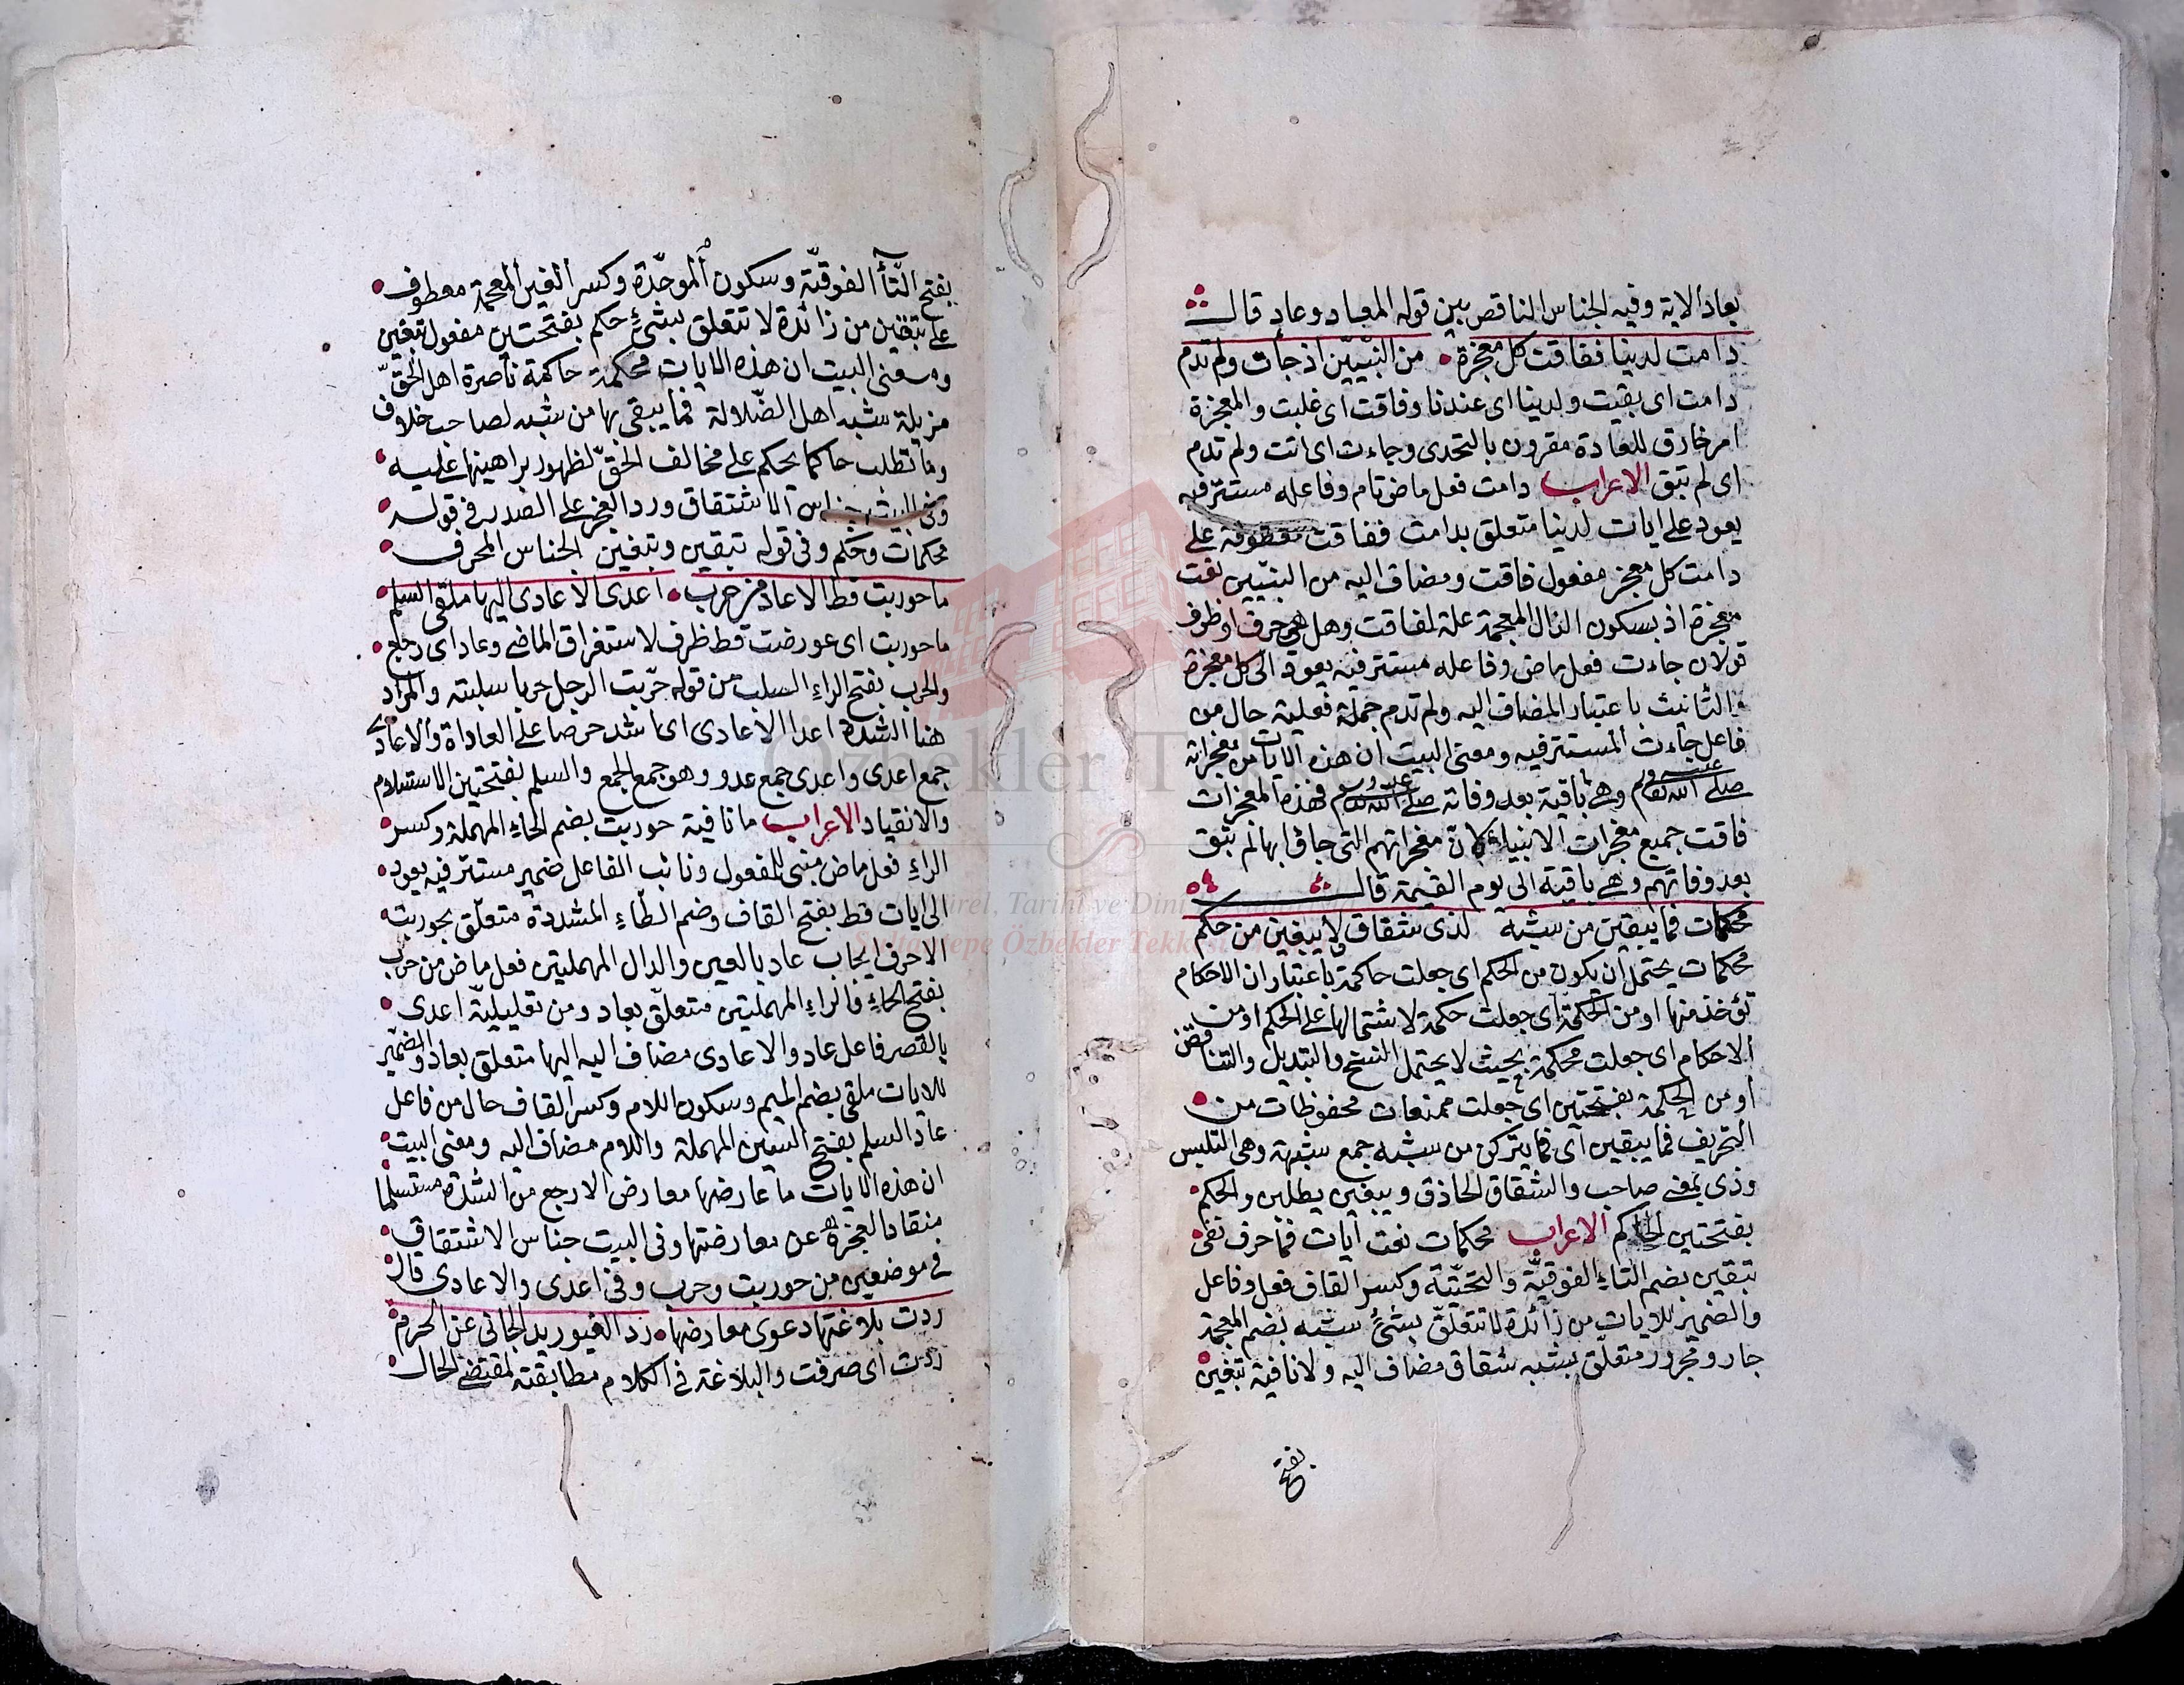 بعاد الاية وفيه الجناس الناقص بين قوله المعاد وعاد قال
دامت لدينا ففاقت كل معجزة من النبيّين اذ جاءت ولم تدم
دامت اى بقيت ولدينا اى عندنا وفاقت اى غلبت والمعجزة
امر خارق للعادة مقرون بالتحدى وجاءت اى اتت ولم تدم
اى لم تبق الاعراب دامت فعل ماض تام وفاعله مستتر فيه
يعود على ايات لدينا متعلق بدامت ففاقت معطوفة على
دامت كل معجز مفعول فاقت ومضاف اليه من النبيّين نعت
معجزة اذ بسكون الذال المعجمة علة لفاقت وهل هى حرف او ظرف
قولان جاءت فعل ماض وفاعله مستتر فيه يعود الى كل معجزة
والتانيث باعتبار المضاف اليه ولم تدم جملة فعلية حال من
فاعل جاءت المستتر فيه ومعنى البيت ان هذه الايات من معجزاته
صلى الله عليه وسلم وهى باقية بعد وفاته صلى الله عليه وسلم فهذه المعجزات
فاقت جميع معجزات الانبياء لان معجزاتهم التى جاؤا بها لم تبق
بعد وفاتهم وهى باقية الى يوم القيمة قال
محكمات فما يبقين من شبه لذى شقاق لا يبغين من حكم
محكمات يحتمل ان يكون من الحكم اى جعلت حاكمة باعتبار ان الاحكام
تؤخذ منها او من الحكمة اى جعلت حكمة لاشتمالها على الحكم او من
الاحكام اى جعلت محكمة بحيث لا يحتمل النسخ والتبديل والتناقض
او من الحكمة بفتحتين اى جعلت ممنعات محفوظات من
التحريف فما يبقين اى فما يتركن من شبه جمع شبهة وهى التلبس
وذى بمعنى صاحب والشقاق الحاذق ويبغين يطلبن والحكم
بفتحتين الحاكم الاعراب محكمات نعت ايات فما حرف نفى
تبقين بضم التاء الفوقيّة والتحتيّة وكسر القاف فعل وفاعل
والضمير للايات من زائدة لا تتعلق بشئ شبه بضم المعجمة
جار ومجرور متعلق بشبه شقاق مضاف اليه ولا نافية تبغين
بفتح
بفتح التّاء الفوقيّة وسكون الموحّدة وكسر الغين المعجمة معطوف
على تبقين من زائدة لا تتعلق بشئ حكم بفتحتين مفعول تبغين
ومعنى البيت ان هذه الايات محكمة حاكمة ناصرة اهل الحقّ
مزيلة شبه اهل الضّلالة فما يبقى بها من شبه لصاحب خلاف
وما تطلب حاكما يحكم على مخالف الحقّ لظهور براهينها عليه
وفى البيت جناس الاشتقاق ورد العجز على الصدر فى قوله
محكمات وحكم وفى قوله تبقين وتبغين الجناس المحرف
ما حوربت قط الا عاد من حرب اعدى الاعادى اليها ملقى السلم
ما حوربت اى عورضت قط ظرف لاستغراق الماضى وعاد اى رجع
والحرب بفتح الراء السلب من قوله حرّبت الرجل حربا سلبته والمراد
هنا الشدة اعدا الاعادى اى اشد حرصا على العاداة والاعادى
جمع اعدى واعدى جمع عدو وهو جمع الجمع والسلم بفتحتين الاستسلام
والانقياد الاعراب ما نافية حوربت بضم الحاء المهملة وكسر
الراء فعل ماض مبنى للمفعول ونائب الفاعل ضمير مستتر فيه يعود
الى ايات قط بفتح القاف وضم الطّاء المشددة متعلّق بحوربت
الا حرف ايجاب عاد بالعين والدال المهملتين فعل ماض من حرب
بفتح الحاء والراء المهملتين متعلّق بعاد ومن تعليليّة اعدى
بالقصر فاعل عاد والاعادى مضاف اليه اليها متعلق بعاد والضمير
للايات ملقى بضم الميم وسكون اللام وكسر القاف حال من فاعل
عاد السلم بفتح السّين المهملة واللام مضاف اليه ومعنى البيت
ان هذه الايات ما عارضها معارض الا رجع من الشدة مستسلما
منقادا لعجزه عن معارضتها وفى البيت جناس الاشتقاق
فى موضعين من حوربت وحرب وفى اعدى والاعادى قال
ردت بلاغتها دعوى معارضها رد الغيور يد الجانى عن الحرم
ردت اى صرفت والبلاغة فى الكلام مطابقته لمقتضى الحال